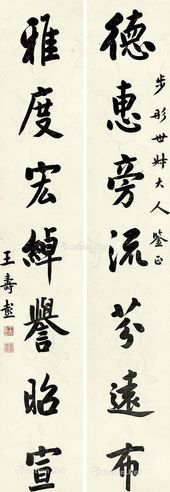 德惠旁流芬遠布
步彤世姊大人鑒正
雅度宏綽譽昭宣
王壽彭